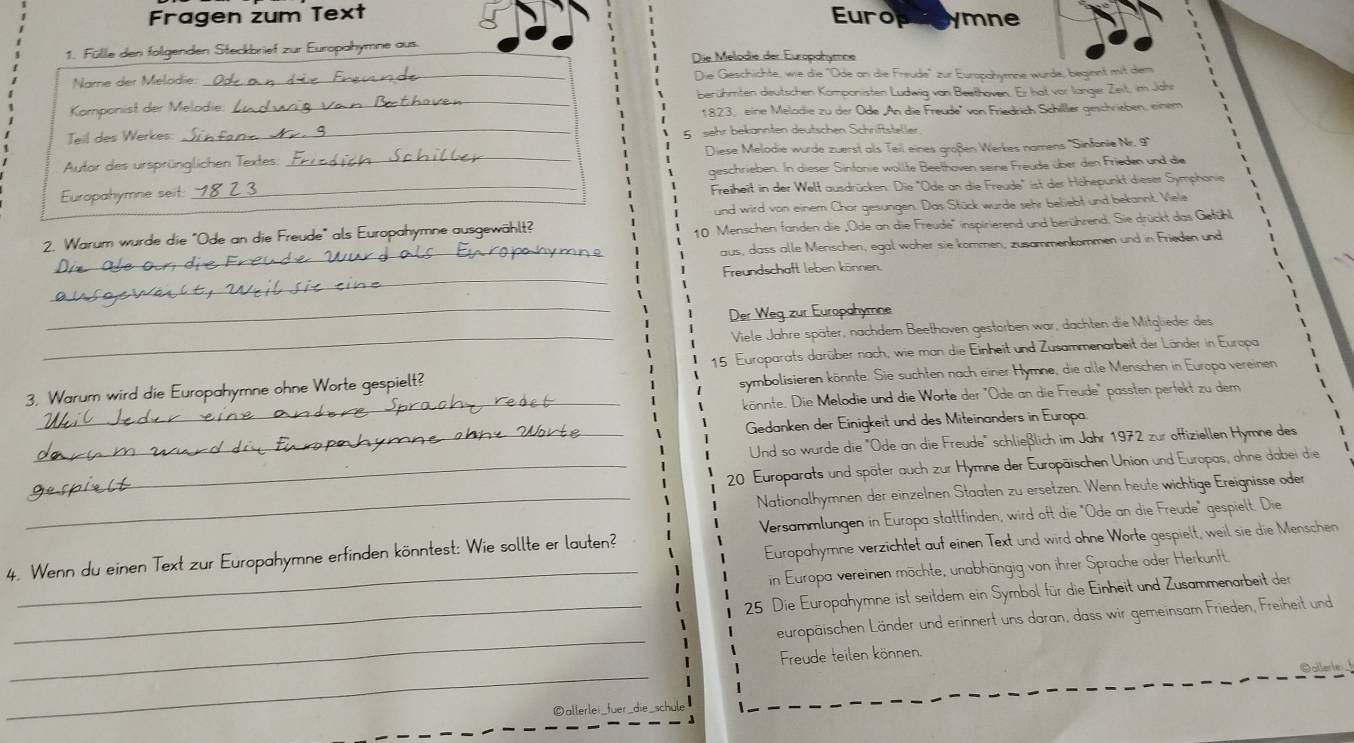 Fragen zum Text
1. Fülle den folgenden Steckbrief zur Europahymne aus.
Name der Melodie: Ode an die Freunde
Komponist der Melodie: Ludwig van Beethoven
Teil des Werkes: Sinfonie Nr. 9
Autor des ursprünglichen Textes: Friedich Schiller
Europahymne seit: 1823
2. Warum wurde die "Ode an die Freude" als Europahymne ausgewählt?
Die ode an die Freude wurd als Europahymne
ausgewählt, Weil sie eine
3. Warum wird die Europahymne ohne Worte gespielt?
Weil Jeder eine andere Sprache redet
darum wurd die Europahymne ohne Worte
gespielt
4. Wenn du einen Text zur Europahymne erfinden könntest: Wie sollte er lauten?
©allerlei_fuer_die_schule
Europ ymne
Die Melodie der Europahymne
Die Geschichte, wie die "Ode an die Freude" zur Europahymne wurde, beginnt mit dem
berühmten deutschen Komponisten Ludwig van Beethoven. Er hat vor langer Zeit, im Jahr
1823, eine Melodie zu der Ode „An die Freude" von Friedrich Schiller geschrieben, einem
5 sehr bekannten deutschen Schriftsteller.
Diese Melodie wurde zuerst als Teil eines großen Werkes namens "Sinfonie Nr. 9"
geschrieben. In dieser Sinfonie wollte Beethoven seine Freude über den Frieden und die
Freiheit in der Welt ausdrücken. Die "Ode an die Freude" ist der Höhepunkt dieser Symphonie
und wird von einem Chor gesungen. Das Stück wurde sehr beliebt und bekannt. Viele
10 Menschen fanden die „Ode an die Freude" inspirierend und berührend. Sie drückt das Gefühl
aus, dass alle Menschen, egal woher sie kommen, zusammenkommen und in Frieden und
Freundschaft leben können.
Der Weg zur Europahymne
Viele Jahre später, nachdem Beethoven gestorben war, dachten die Mitglieder des
15 Europarats darüber nach, wie man die Einheit und Zusammenarbeit der Länder in Europa
symbolisieren könnte. Sie suchten nach einer Hymne, die alle Menschen in Europa vereinen
könnte. Die Melodie und die Worte der "Ode an die Freude" passten perfekt zu dem
Gedanken der Einigkeit und des Miteinanders in Europa.
Und so wurde die "Ode an die Freude" schließlich im Jahr 1972 zur offiziellen Hymne des
20 Europarats und später auch zur Hymne der Europäischen Union und Europas, ohne dabei die
Nationalhymnen der einzelnen Staaten zu ersetzen. Wenn heute wichtige Ereignisse oder
Versammlungen in Europa stattfinden, wird oft die "Ode an die Freude" gespielt. Die
Europahymne verzichtet auf einen Text und wird ohne Worte gespielt, weil sie die Menschen
in Europa vereinen möchte, unabhängig von ihrer Sprache oder Herkunft.
25 Die Europahymne ist seitdem ein Symbol für die Einheit und Zusammenarbeit der
europäischen Länder und erinnert uns daran, dass wir gemeinsam Frieden, Freiheit und
Freude teilen können.
©allerlei_f